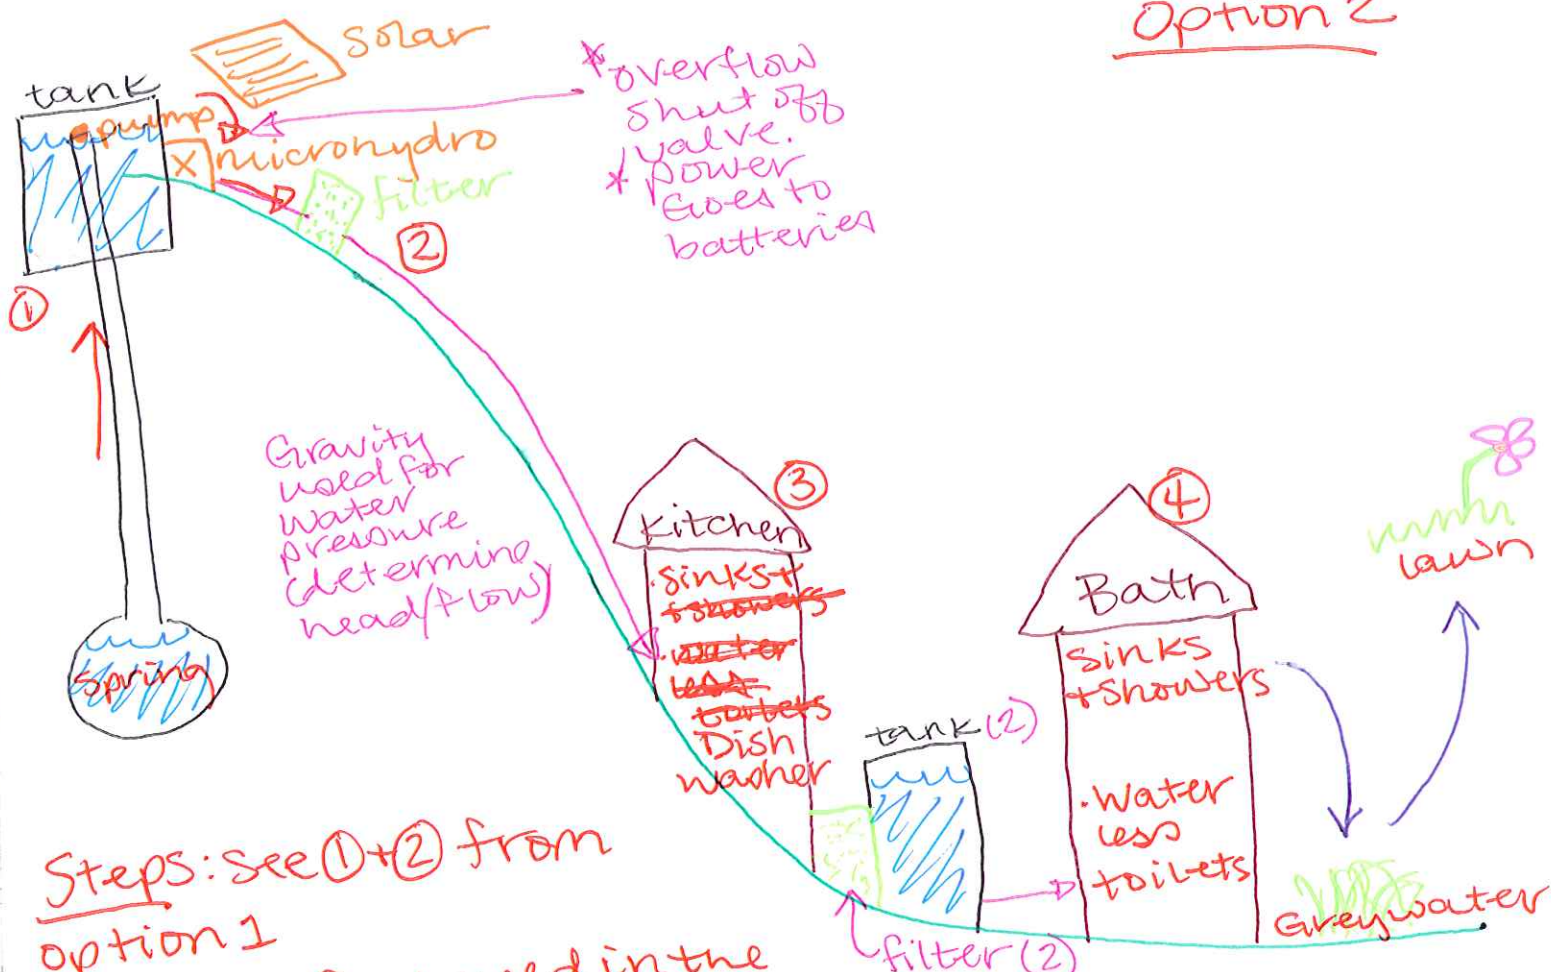 Option 2
solar
tank
pump
X microhydro
filter
* overflow
shut off
valve.
* power
Goes to
batteries
1
2
Gravity
used for
water
pressure
(determine
head/flow)
3
Kitchen
. sinks +
+ showers
. water
less
toilets
Dish
washer
4
Bath
sinks
+ showers
. water
less
toilets
lawn
tank (2)
Spring
Greywater
filter (2)
Steps: see 1 + 2 from
option 1
used in the